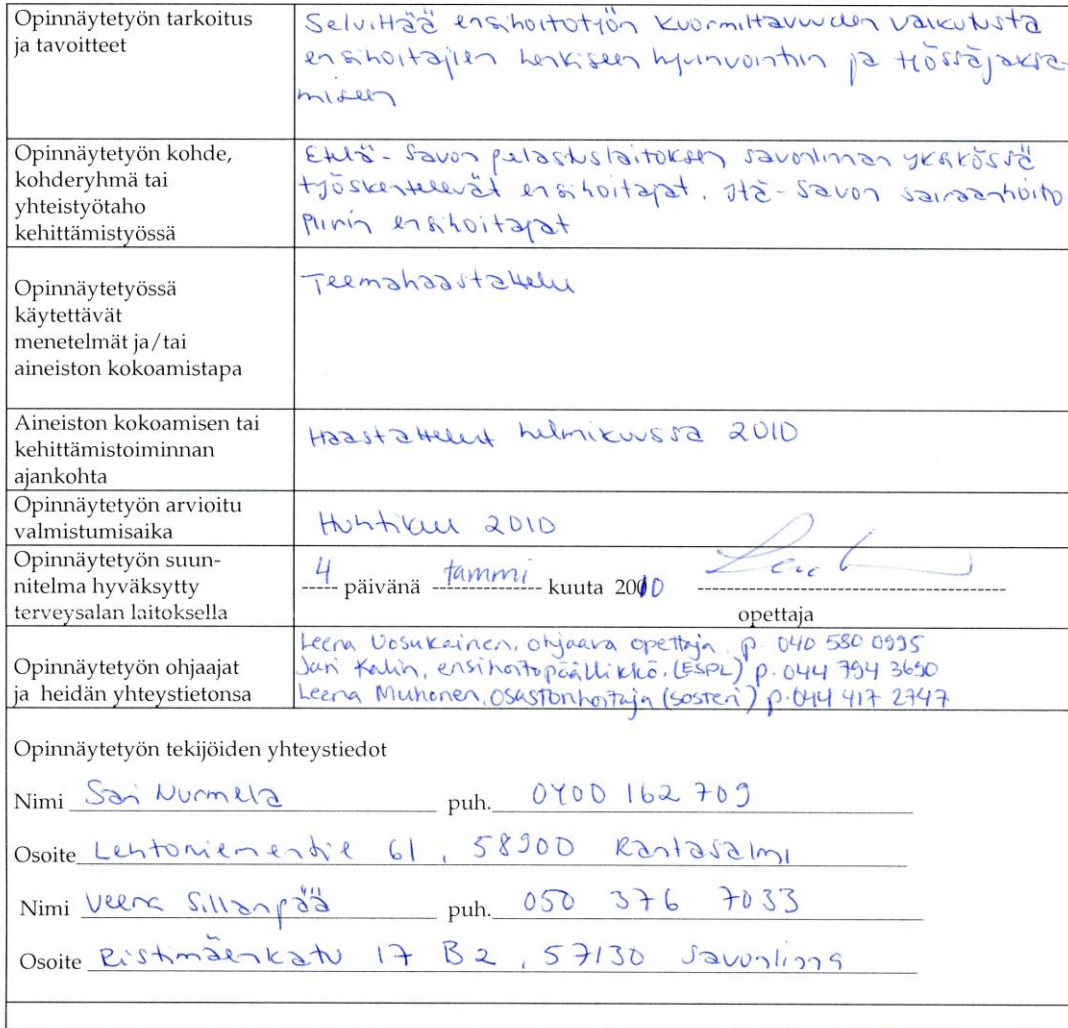 Opinnäytetyön tarkoitus
ja tavoitteet
Selvittää ensihoitotyön kuormittavuuden vaikutusta
ensihoitajien henkiseen hyvinvointiin ja työssäjaksa-
miseen
Opinnäytetyön kohde,
kohderyhmä tai
yhteistyötaho
kehittämistyössä
Etelä-Savon pelastuslaitoksen Savonlinnan yksikössä
työskentelevät ensihoitajat, Itä-Savon sairaanhoito
piirin ensihoitajat
Opinnäytetyössä
käytettävät
menetelmät ja/tai
aineiston kokoamistapa
Teemahaastattelu
Aineiston kokoamisen tai
kehittämistoiminnan
ajankohta
Haastattelut helmikuussa 2010
Opinnäytetyön arvioitu
valmistumisaika
Huhtikuu 2010
Opinnäytetyön suun-
nitelma hyväksytty
terveysalan laitoksella
4 päivänä tammi kuuta 2010
opettaja
Opinnäytetyön ohjaajat
ja heidän yhteystietonsa
Leena Uosukainen, ohjaava opettaja p. 040 580 0995
Jari Kalin, ensihoitopäällikkö, (ESPL) p. 044 794 3690
Leena Muhonen, osastonhoitaja (sosteri) p. 044 417 2747
Opinnäytetyön tekijöiden yhteystiedot
Nimi Sari Nurmela puh. 0400 162 709
Osoite Lehtoniementie 61, 58900 Rantasalmi
Nimi Veera Sillanpää puh. 050 376 7033
Osoite Ristimäenkatu 17 B 2, 57130 Savonlinna